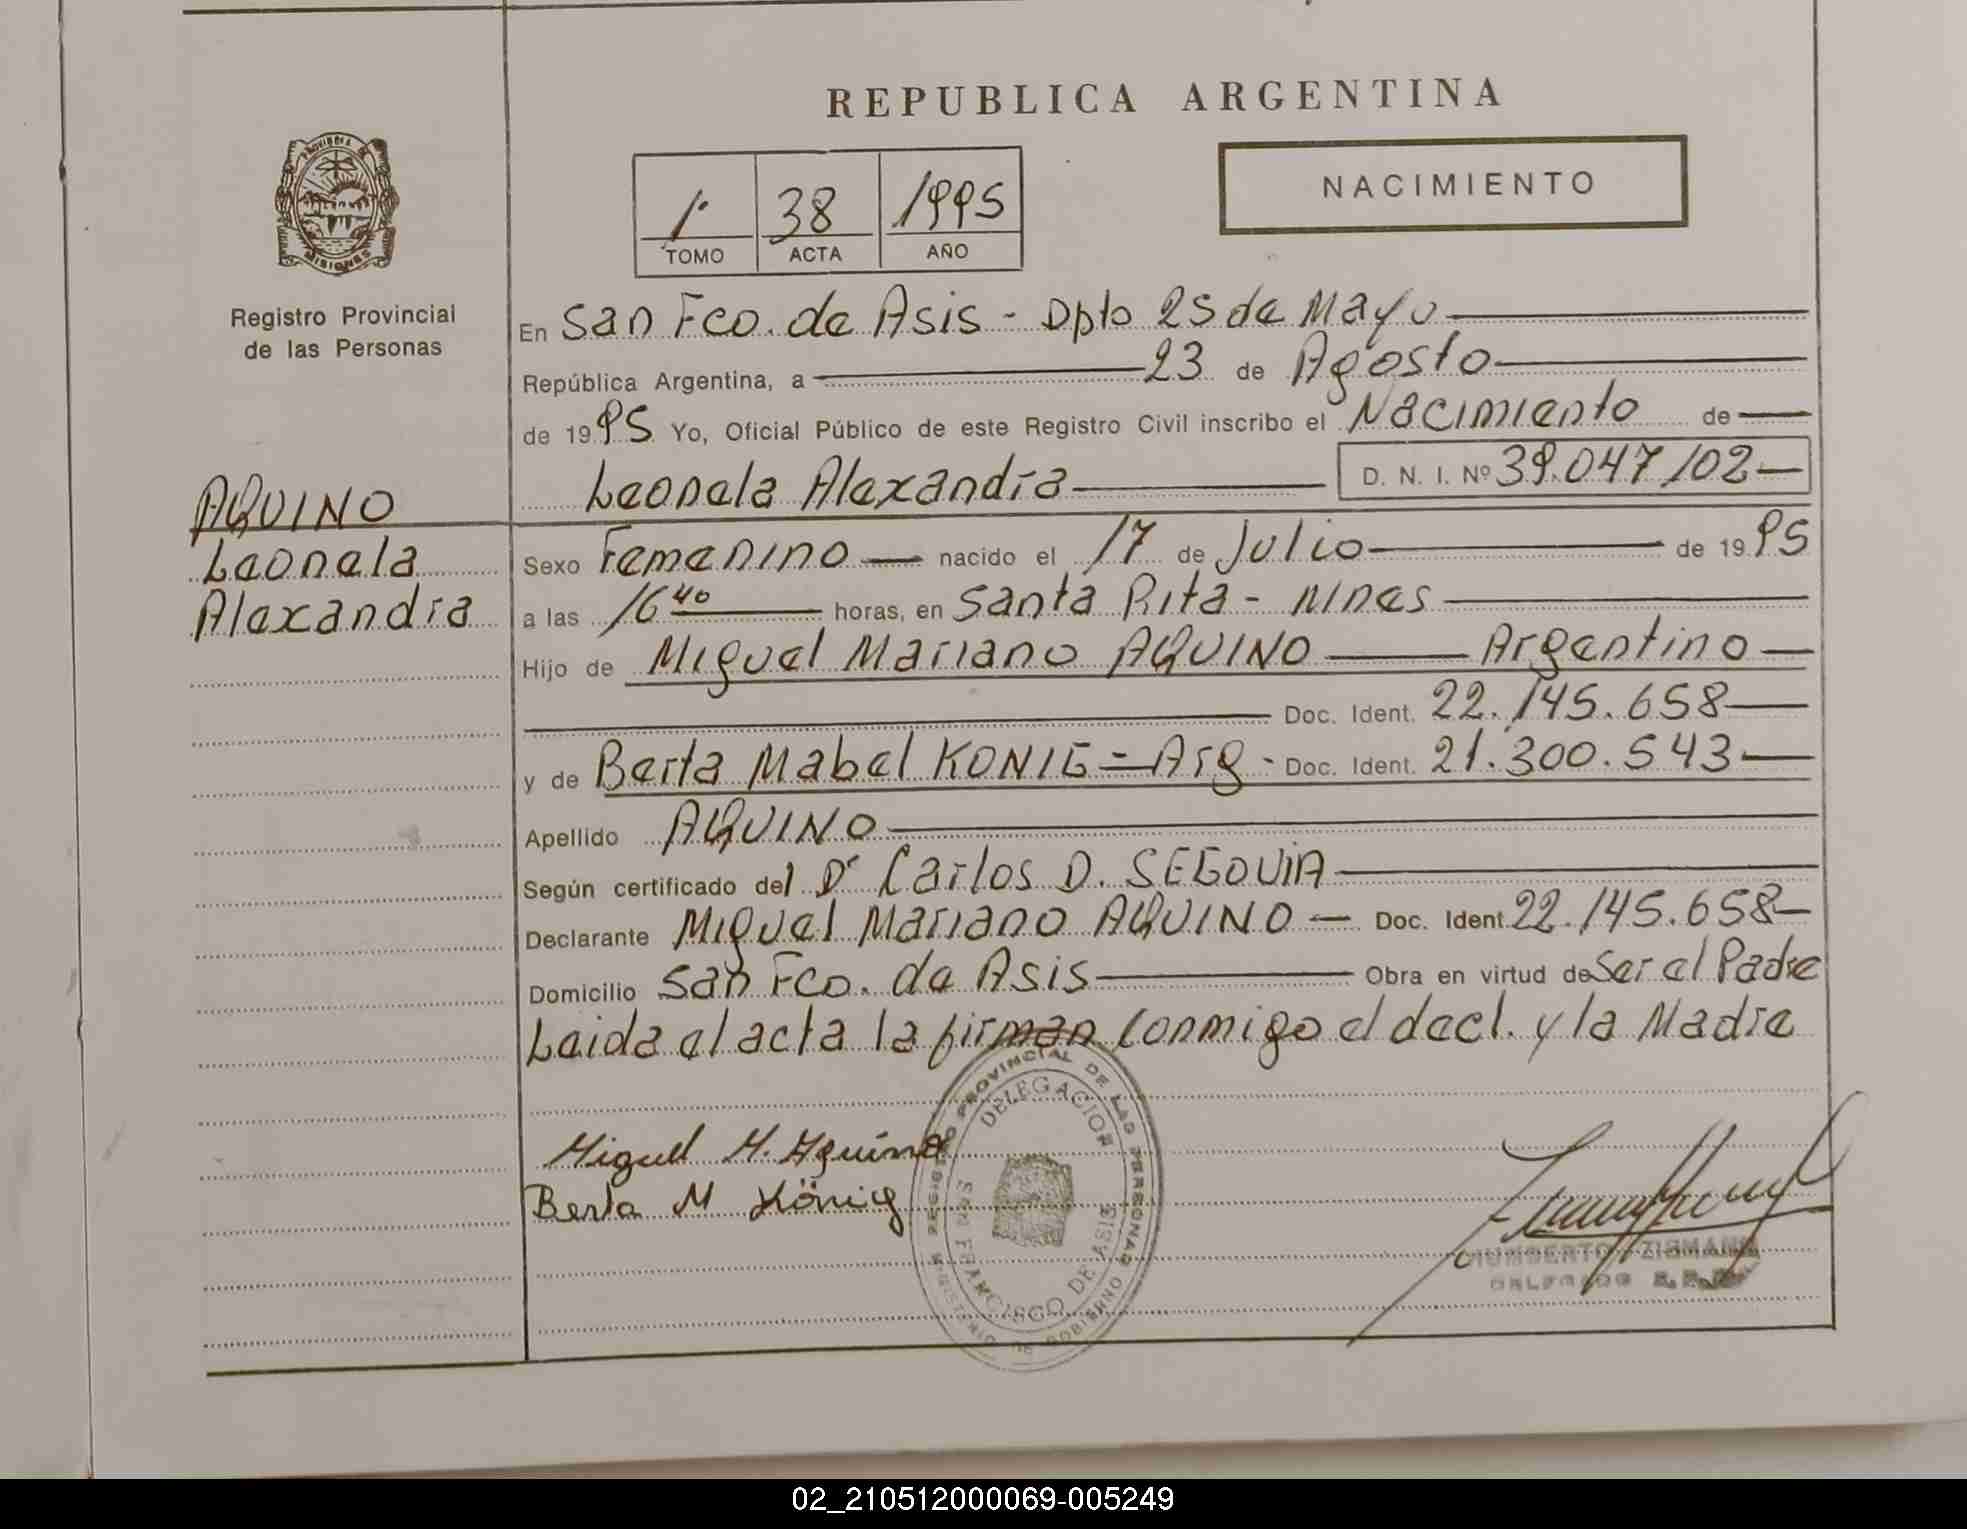 REPUBLICA ARGENTINA
NACIMIENTO
1º 38 1995
TOMO ACTA AÑO
PROVINCIA DE
MISIONES
Registro Provincial
de las Personas
En San Fco. de Asis - Dpto 25 de Mayo
República Argentina, a 23 de Agosto
de 1995 Yo, Oficial Público de este Registro Civil inscribo el Nacimiento de
Leonela Alexandra D. N. I. Nº 39.047102
AQUINO
Leonela
Alexandra
Sexo Femenino nacido el 17 de Julio de 1995
a las 16 40 horas, en Santa Rita - Mnes
Hijo de Miguel Mariano AQUINO Argentino
Doc. Ident. 22.145.658
y de Berta Mabel KONIG = Arg - Doc. Ident. 21.300.543
Apellido AQUINO
Según certificado del Dr Carlos D. SEGOVIA
Declarante Miguel Mariano AQUINO Doc. Ident. 22.145.658
Domicilio San Fco. de Asis Obra en virtud de Ser el Padre
Leida el acta la firman conmigo el decl. y la Madre
Miguel M. Aquino
Berta M König
REGISTRO PROVINCIAL DE LAS PERSONAS
MINISTERIO DE GOBIERNO
DELEGACION
SAN FRANCISCO DE ASIS
HUMBERTO ZISMANN
DELEGADO
02_210512000069-005249